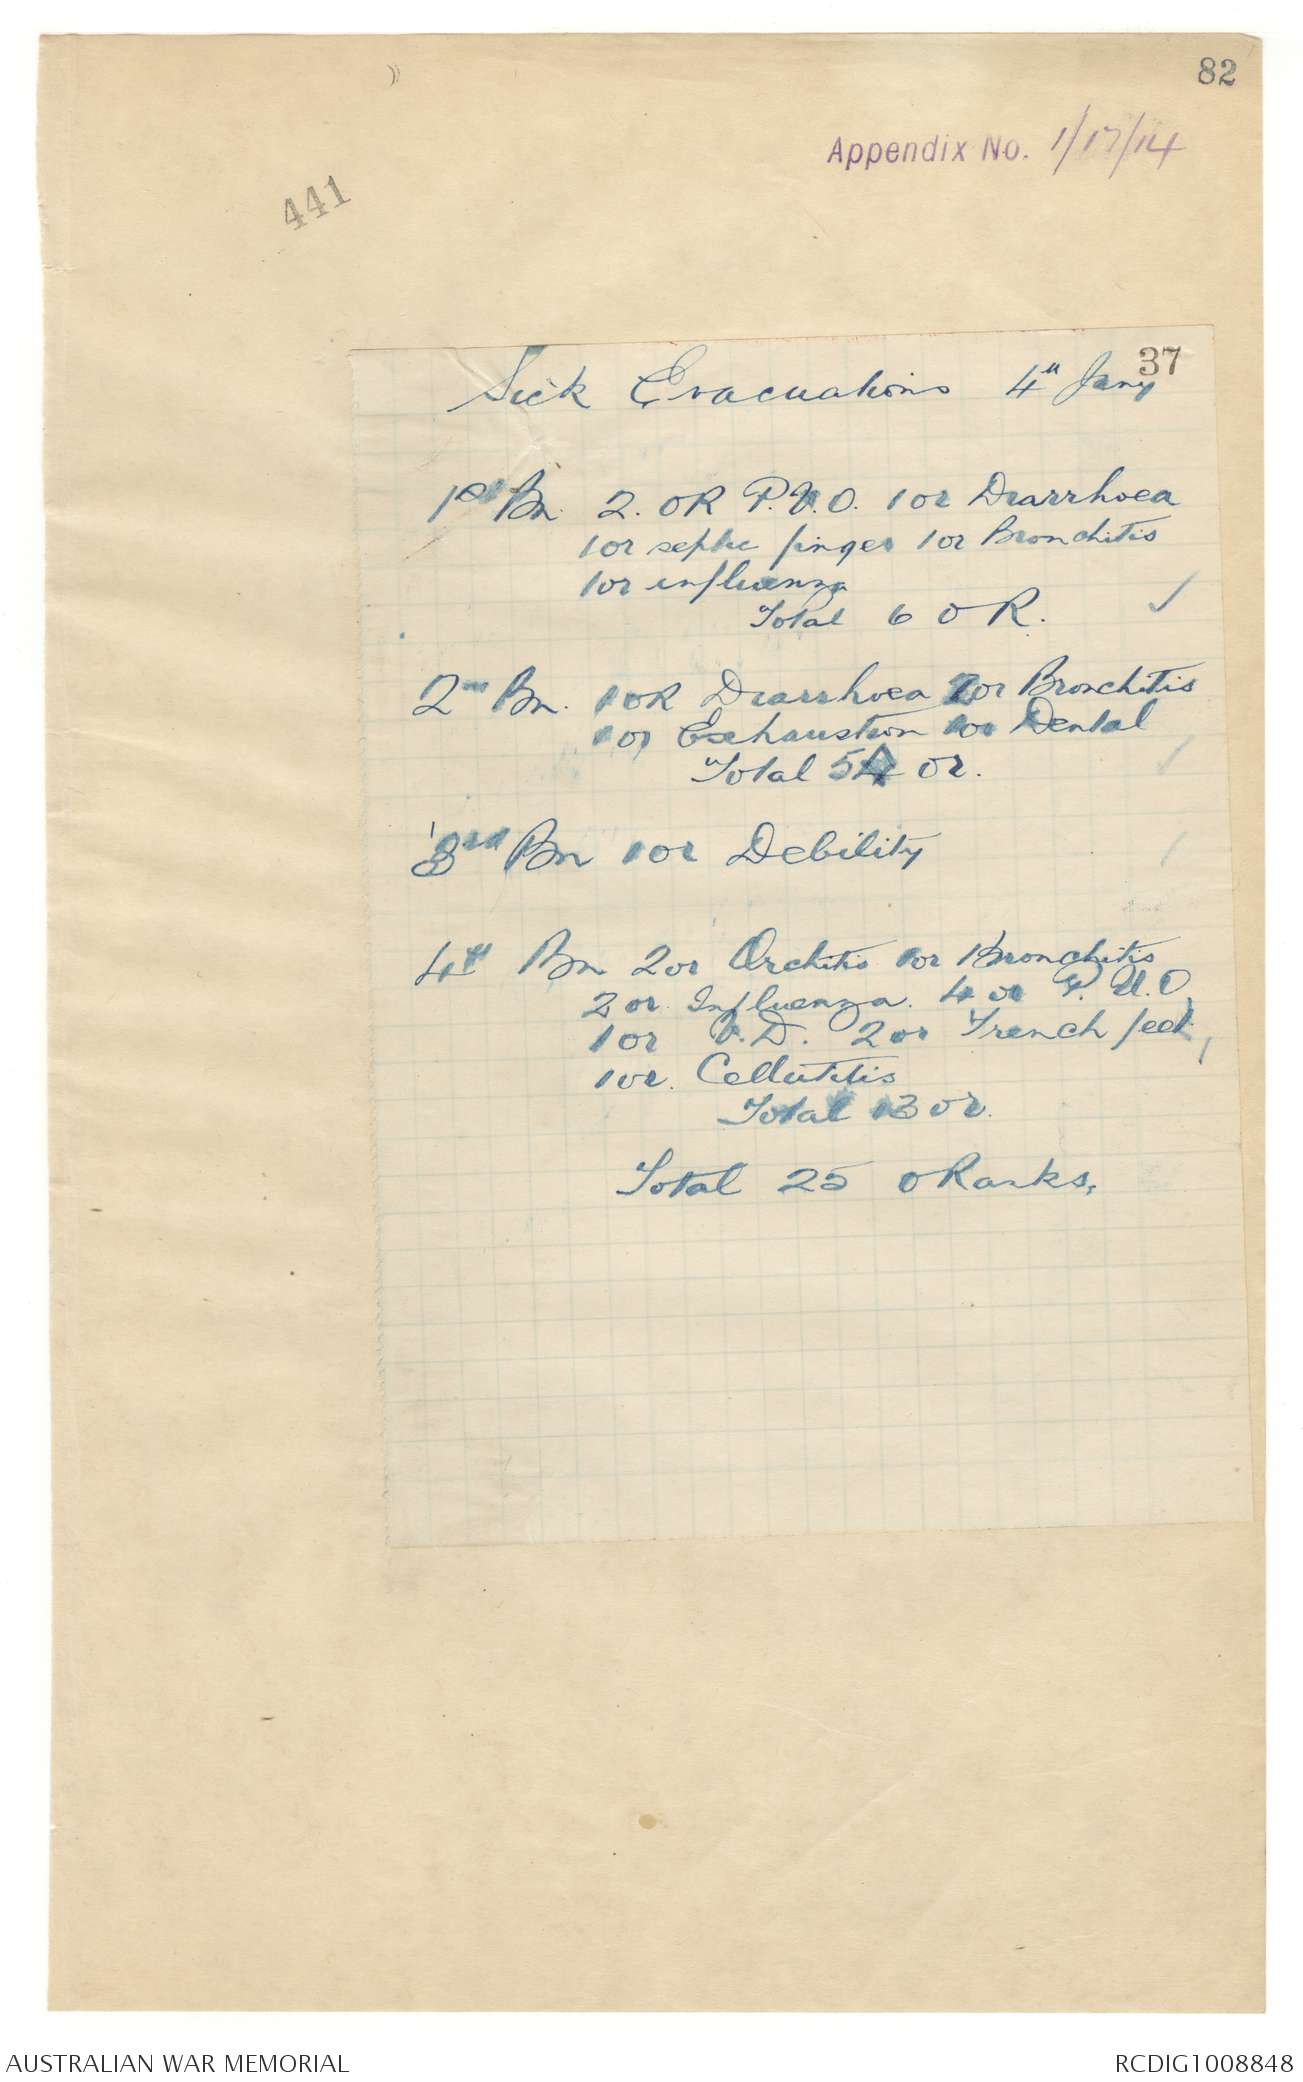 82
Appendix No. 1/17/14
441
37
Sick Evacuations 4th Jany
1st Bn. 2. OR P.U.O. 1 or Diarrhoea
1 or septic finger 1 or Bronchitis
1 or influenza
Total 6 OR.
2nd Bn. 1 OR Diarrhoea 2 or Bronchitis
1 or Exhaustion 1 or Dental
Total 5 or.
3rd Bn 1 or Debility
4th Bn 2 or Orchitis 1 or Bronchitis
2 or Influenza. 4 or P.U.O,
1 or V.D. 2 or Trench feet,
1 or. Cellutitis
Total 13 or.
Total 25 O Ranks,
AUSTRALIAN WAR MEMORIAL
RCDIG1008848